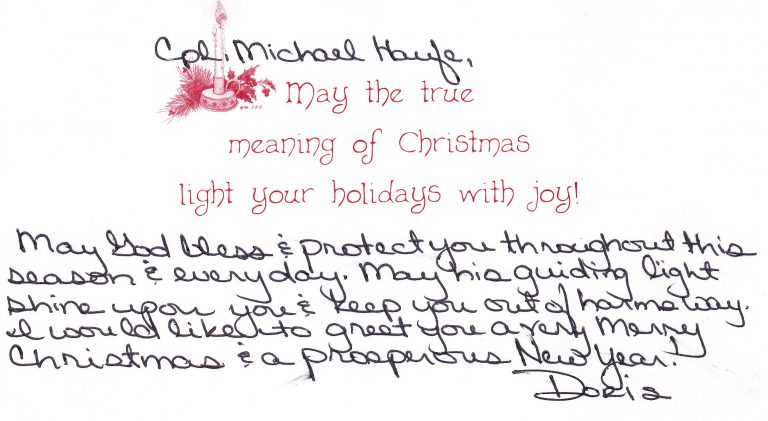 Cpl. Michael Haufe,
May the true
meaning of Christmas
light your holidays with joy!
May God bless & protect you throughout this
season & everyday. May his guiding light
shine upon you & keep you out of harms way.
I would like to greet you a very Merry
Christmas & a prosperous New Year!
Doris